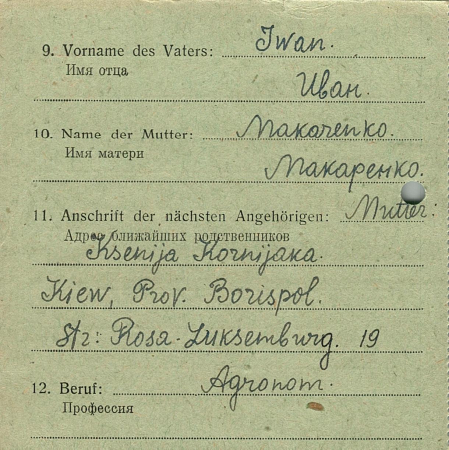 9. Vorname des Vaters: Iwan.
Имя отца
Иван.
10. Name der Mutter: Makarenko.
Имя матери
Макаренко.
11. Anschrift der nächsten Angehörigen: Mutter:
Адрес ближайших родственников
Ksenija Kornijaka.
Kiew, Prov. Borispol.
Str: Rosa-Luksemburg. 19
12. Beruf: Agronom.
Профессия